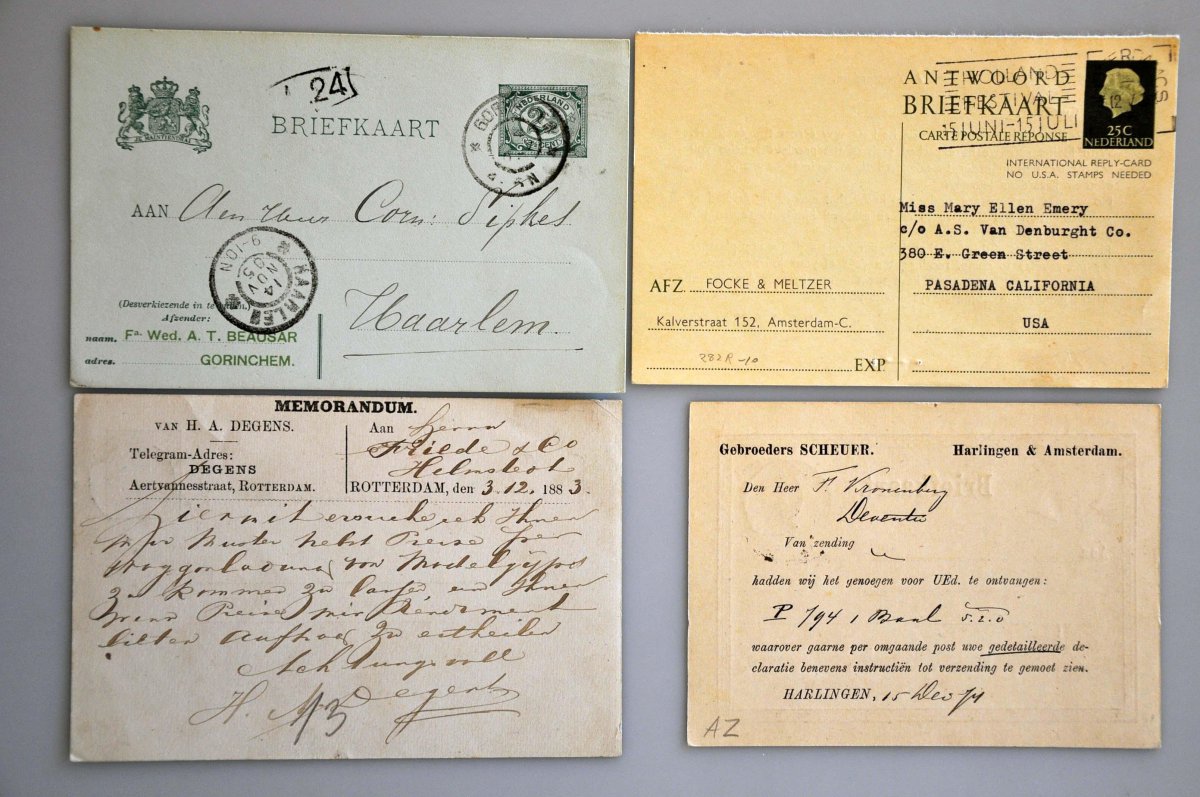 24
BRIEFKAART
NEDERLAND
CENT
4-5N
AAN Corn: Sipkes
HAARLEM
14 NOV 05
9-10N
(Desverkiezende in te
Afzender:
Haarlem.
naam. Fa. Wed. A. T. BEAUSAR
adres. GORINCHEM.
ANTWOORD
BRIEFKAART
CARTE POSTALE RÉPONSE
HOLLAND
FESTIVAL
15 JUNI-15 JULI
12
25C
NEDERLAND
INTERNATIONAL REPLY-CARD
NO U.S.A. STAMPS NEEDED
Miss Mary Ellen Emery
c/o A.S. Van Denburght Co.
380 E. Green Street
PASADENA CALIFORNIA
USA
AFZ FOCKE & MELTZER
Kalverstraat 152, Amsterdam-C.
282R-10
EXP
MEMORANDUM.
VAN H. A. DEGENS.
Telegram-Adres:
DEGENS
Aertvannesstraat, ROTTERDAM.
Aan Herrn
Friede & Co
Helmstedt
ROTTERDAM, den 3.12.1883.
Hiermit ersuche ich Ihnen
mir Muster nebst Preise per
Waggonladung von Modelgyps
zu kommen zu lassen
Preise mir
Auftrag zu ertheilen
Achtungsvoll
H. Degens
Gebroeders SCHEUER. Harlingen & Amsterdam.
Den Heer F. Kronenberg
Deventer
Van zending
hadden wij het genoegen voor UEd. te ontvangen:
P 794 1 Baal
waarover gaarne per omgaande post uwe gedetailleerde de-
claratie benevens instructiën tot verzending te gemoet zien.
HARLINGEN, 15 Dec 74
AZ